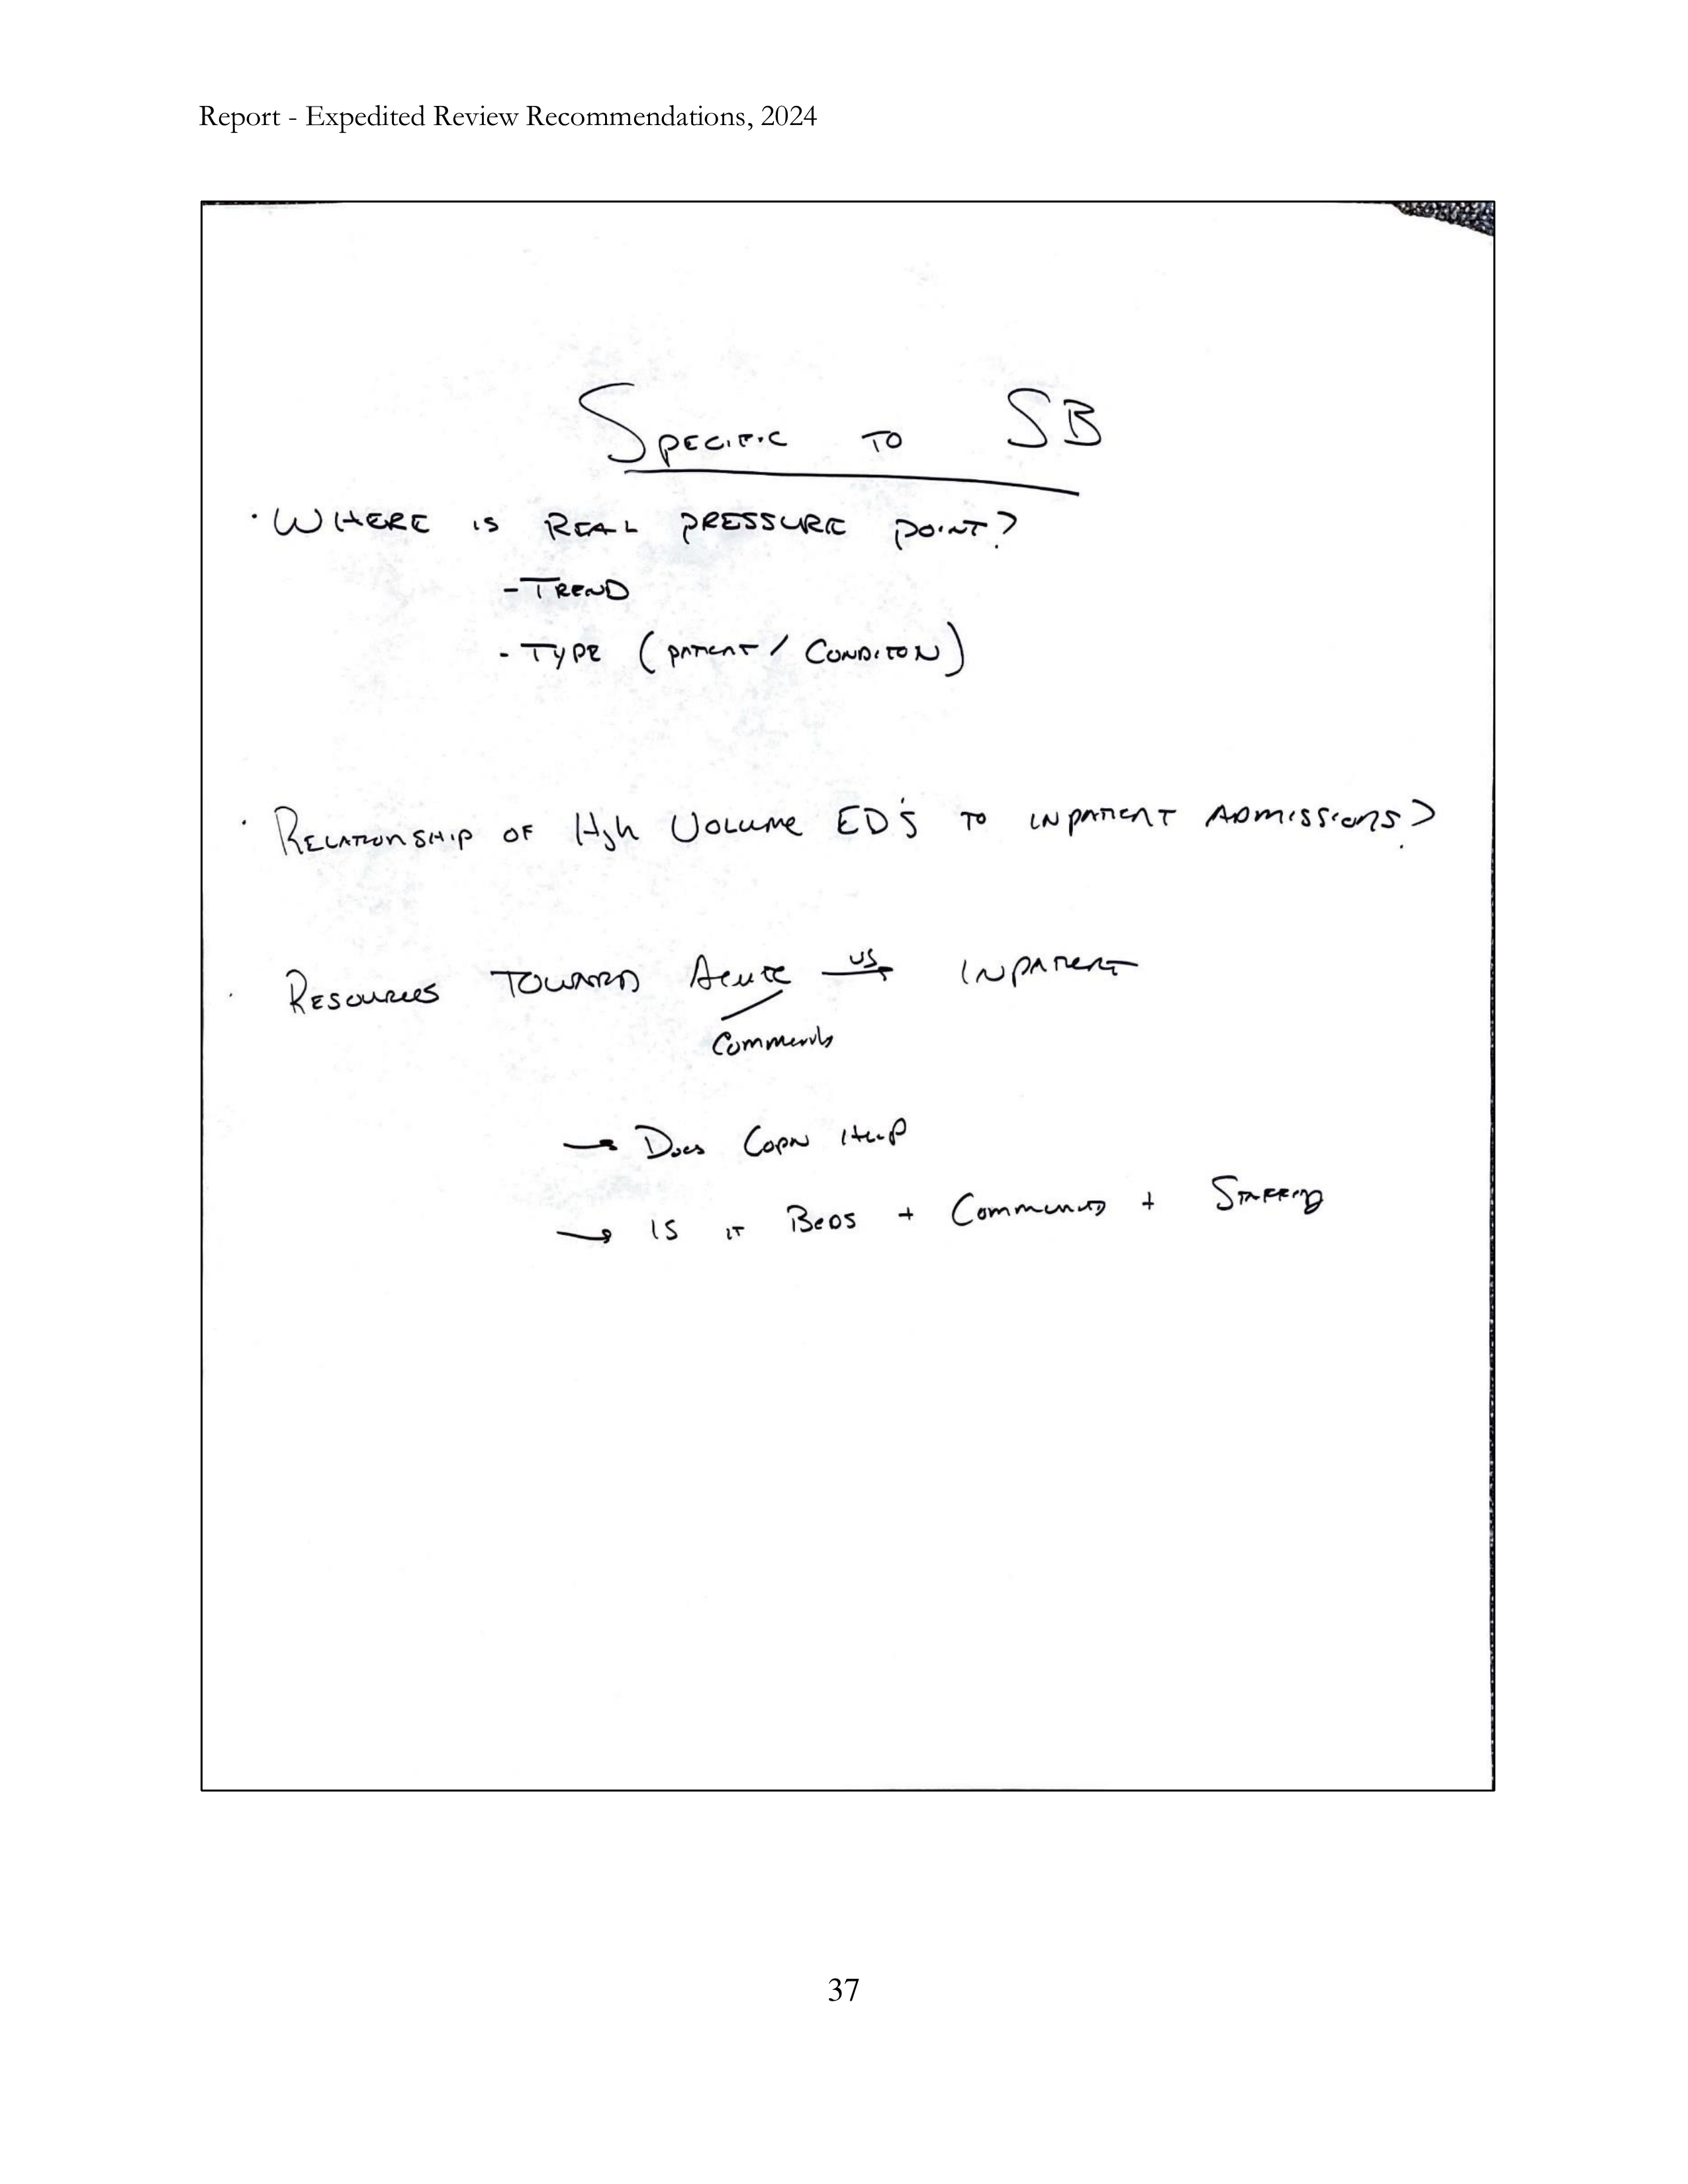 Report - Expedited Review Recommendations, 2024
SPECIFIC TO SB
· WHERE IS REAL PRESSURE POINT?
- TREND
- TYPE (PATIENT / CONDITON)
· RELATIONSHIP OF High VOLUME ED'S TO INPATIENT ADMISSIONS?
· RESOURCES TOWARD Acute vs INPATIENT
Community
→ Does COPN HELP
→ IS IT BEDS + Community + STAFFING
37